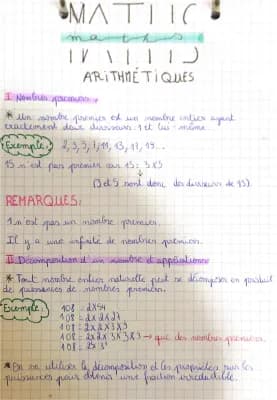 MATHS
maths
MATHS
ARITHMÉTIQUES
I Nombres premiers :
* Un nombre premier est un nombre entier ayant
exactement deux diviseurs : 1 et lui-même.
Exemple : 2, 3, 5, 7, 11, 13, 17, 19...
15 n'est pas premier car 15 = 3x5
(3 et 5 sont donc des diviseurs de 15).
REMARQUES :
1 n'est pas un nombre premier.
Il y a une infinité de nombres premiers.
II Décomposition d'un nombre et applications
* Tout nombre entier naturelle peut se décomposer en produit
de puissances de nombres premiers.
Exemple : 108 = 2x54
108 = 2x2x27
108 = 2x2x3x9
108 = 2x2x3x3x3 → que des nombres premiers.
108 = 2²x3³
* On utilise la décomposition et les propriétés sur les
puissances pour obtenir une fraction irréductible.